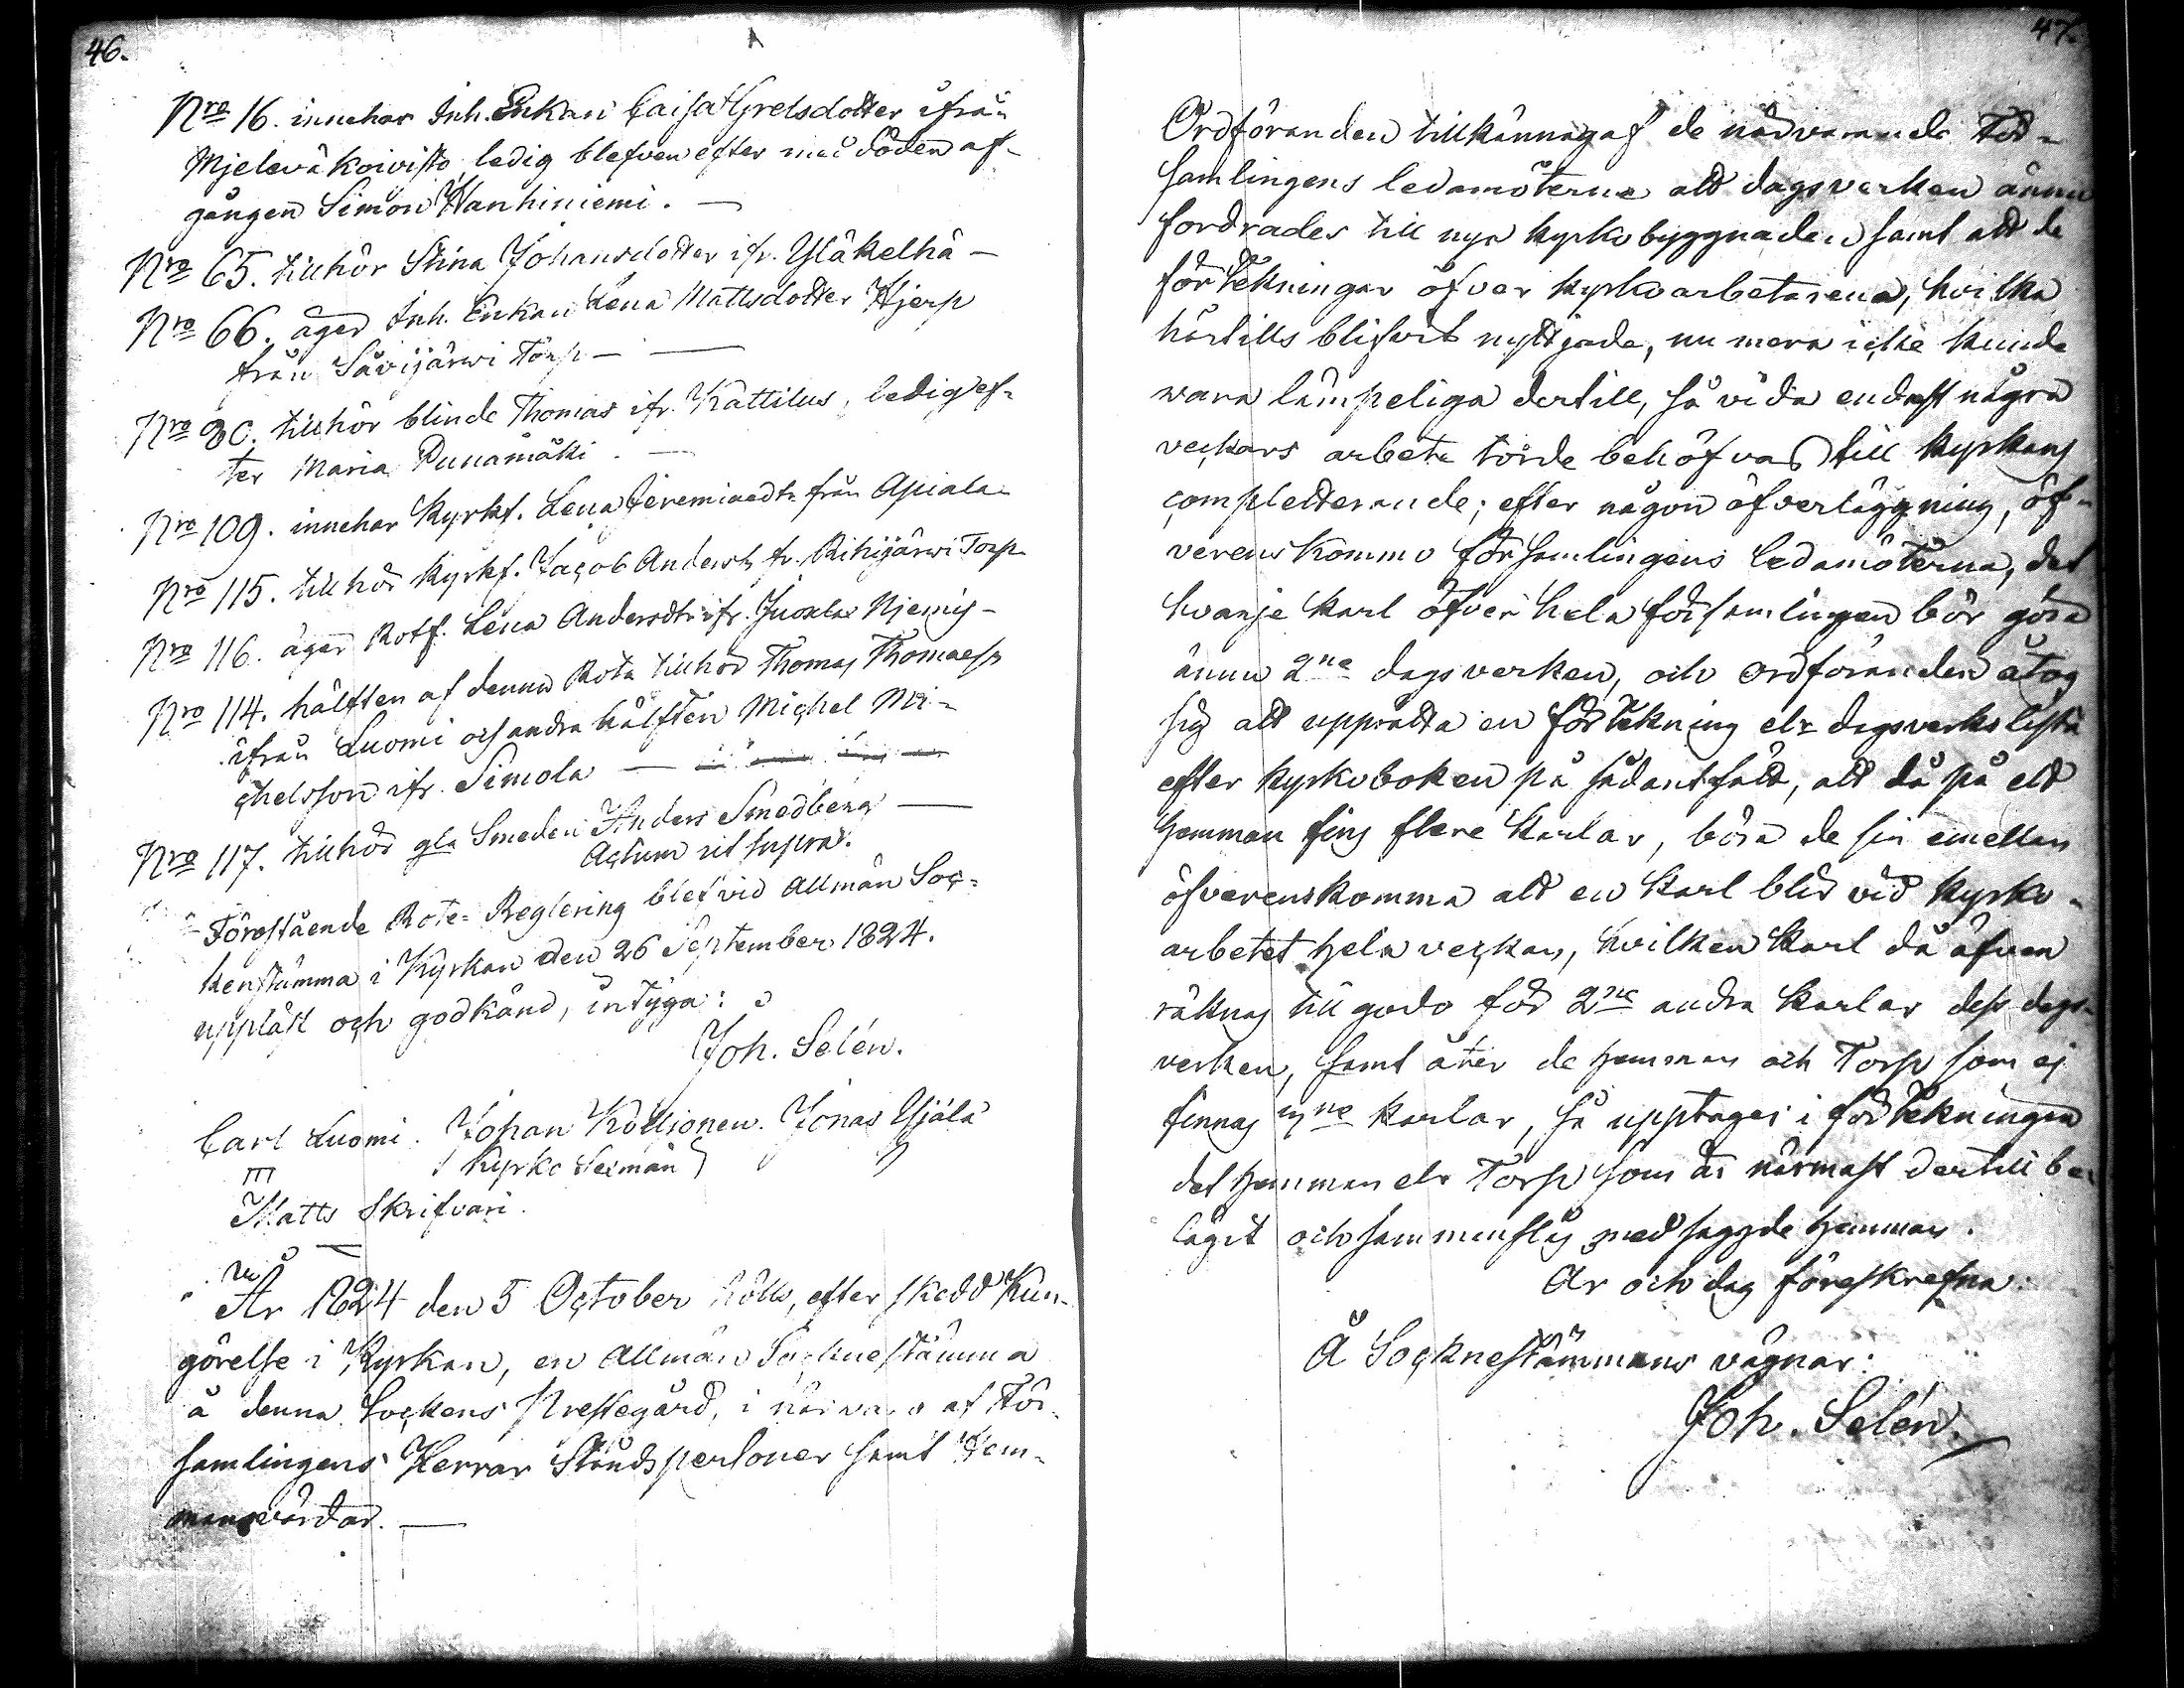 46.
Nro 16. innehar Inh. Enkan Caisa Gretsdotter ifrån
Mjelevä Koivisto ledig blefven efter med döden af-
gången Simon Hanhiniemi. —
Nro 65. tillhör Stina Johansdotter ifr. Yläkelhä —
Nro 66. äger Inh. Enkan Lena Mattsdotter Hjerp
från Sävijärwi Torp — —
Nro 80. tillhör blinde Thomas ifr. Kattilus, ledig ef-
ter Maria Punamäki. —
Nro 109. innehar Kyrkf. Lena Jeremiaedtr från Apiala
Nro 115. tillhör Kyrkf. Jacob Anderss. fr. Rihijärwi Torp
Nro 116. äger Rotf. Lena Andersdtr ifr. Juoxla
Nro 114. hälften af denna Rota tillhör Thomas Thomaess.
ifrån Luomi och andra hälften Michel Mi-
chelsson ifr. Simola —
Nro 117. tillhör gla Smeden Anders Smedberg —
Actum ut supra.
Förestående Rote-Reglering blef vid Allmän Soc-
kenstämma i Kyrkan den 26 September 1824.
uppläst och godkänd, intyga:
Joh. Selén.
Carl Luomi. Johan Jonas Yjälä
Kyrko Sexmän
Matts Skrifvari.
År 1824 den 5 October hölts, efter skedd Kun-
görelse i Kyrkan, en Allmän Socknestämma
å denna Sockens Prestegård, i närvaro af För-
samlingens Herrar Ståndspersoner samt Hem-
mansvärdar. —
47.
Ordföranden tillkännagaf de närvarande För-
samlingens ledamöterne att dagsverken ännu
fordrades till nya kyrkobyggnaden samt att de
förtekningar öfver kyrkoarbetarena, hvilka
härtills blifvit nyttjade, nu mera icke kunde
wara lämpeliga dertill, så vida endast några
veckors arbete torde behöfvas till kyrkans
completterande; efter någon öfverläggning, öf-
verenskommo Församlingens ledamöterna, det
hvarje karl öfver hela församlingen bör göra
ännu 2ne dagsverken, och ordföranden åtog
sig att upprätta en förtekning elr dagsverkslista
efter kyrkoboken på sådant sätt, att då på ett
hemman fins flere karlar, böra de sin emellan
öfverenskomma att en karl blir vid kyrko-
arbetet hela veckan, hvilken karl då äfven
räknas till godo för 2ne andra karlar dess dags-
verken, samt åter de hemman och Torp som ej
finnas 3ne karlar, så upptages i förtekningen
det hemman elr Torp som är närmast dertill be-
lägit och sammanslås med sagde hemman.
År och dag föreskrefna:
Å Socknestämmans vägnar:
Joh. Selén.